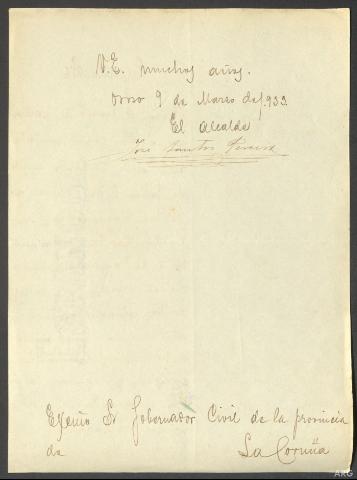 V.E. muchos años.
Oroso 9 de Marzo de 1.933
El Alcalde
José Santos
Excmo Sr Gobernador Civil de la provincia
de La Coruña
ARG